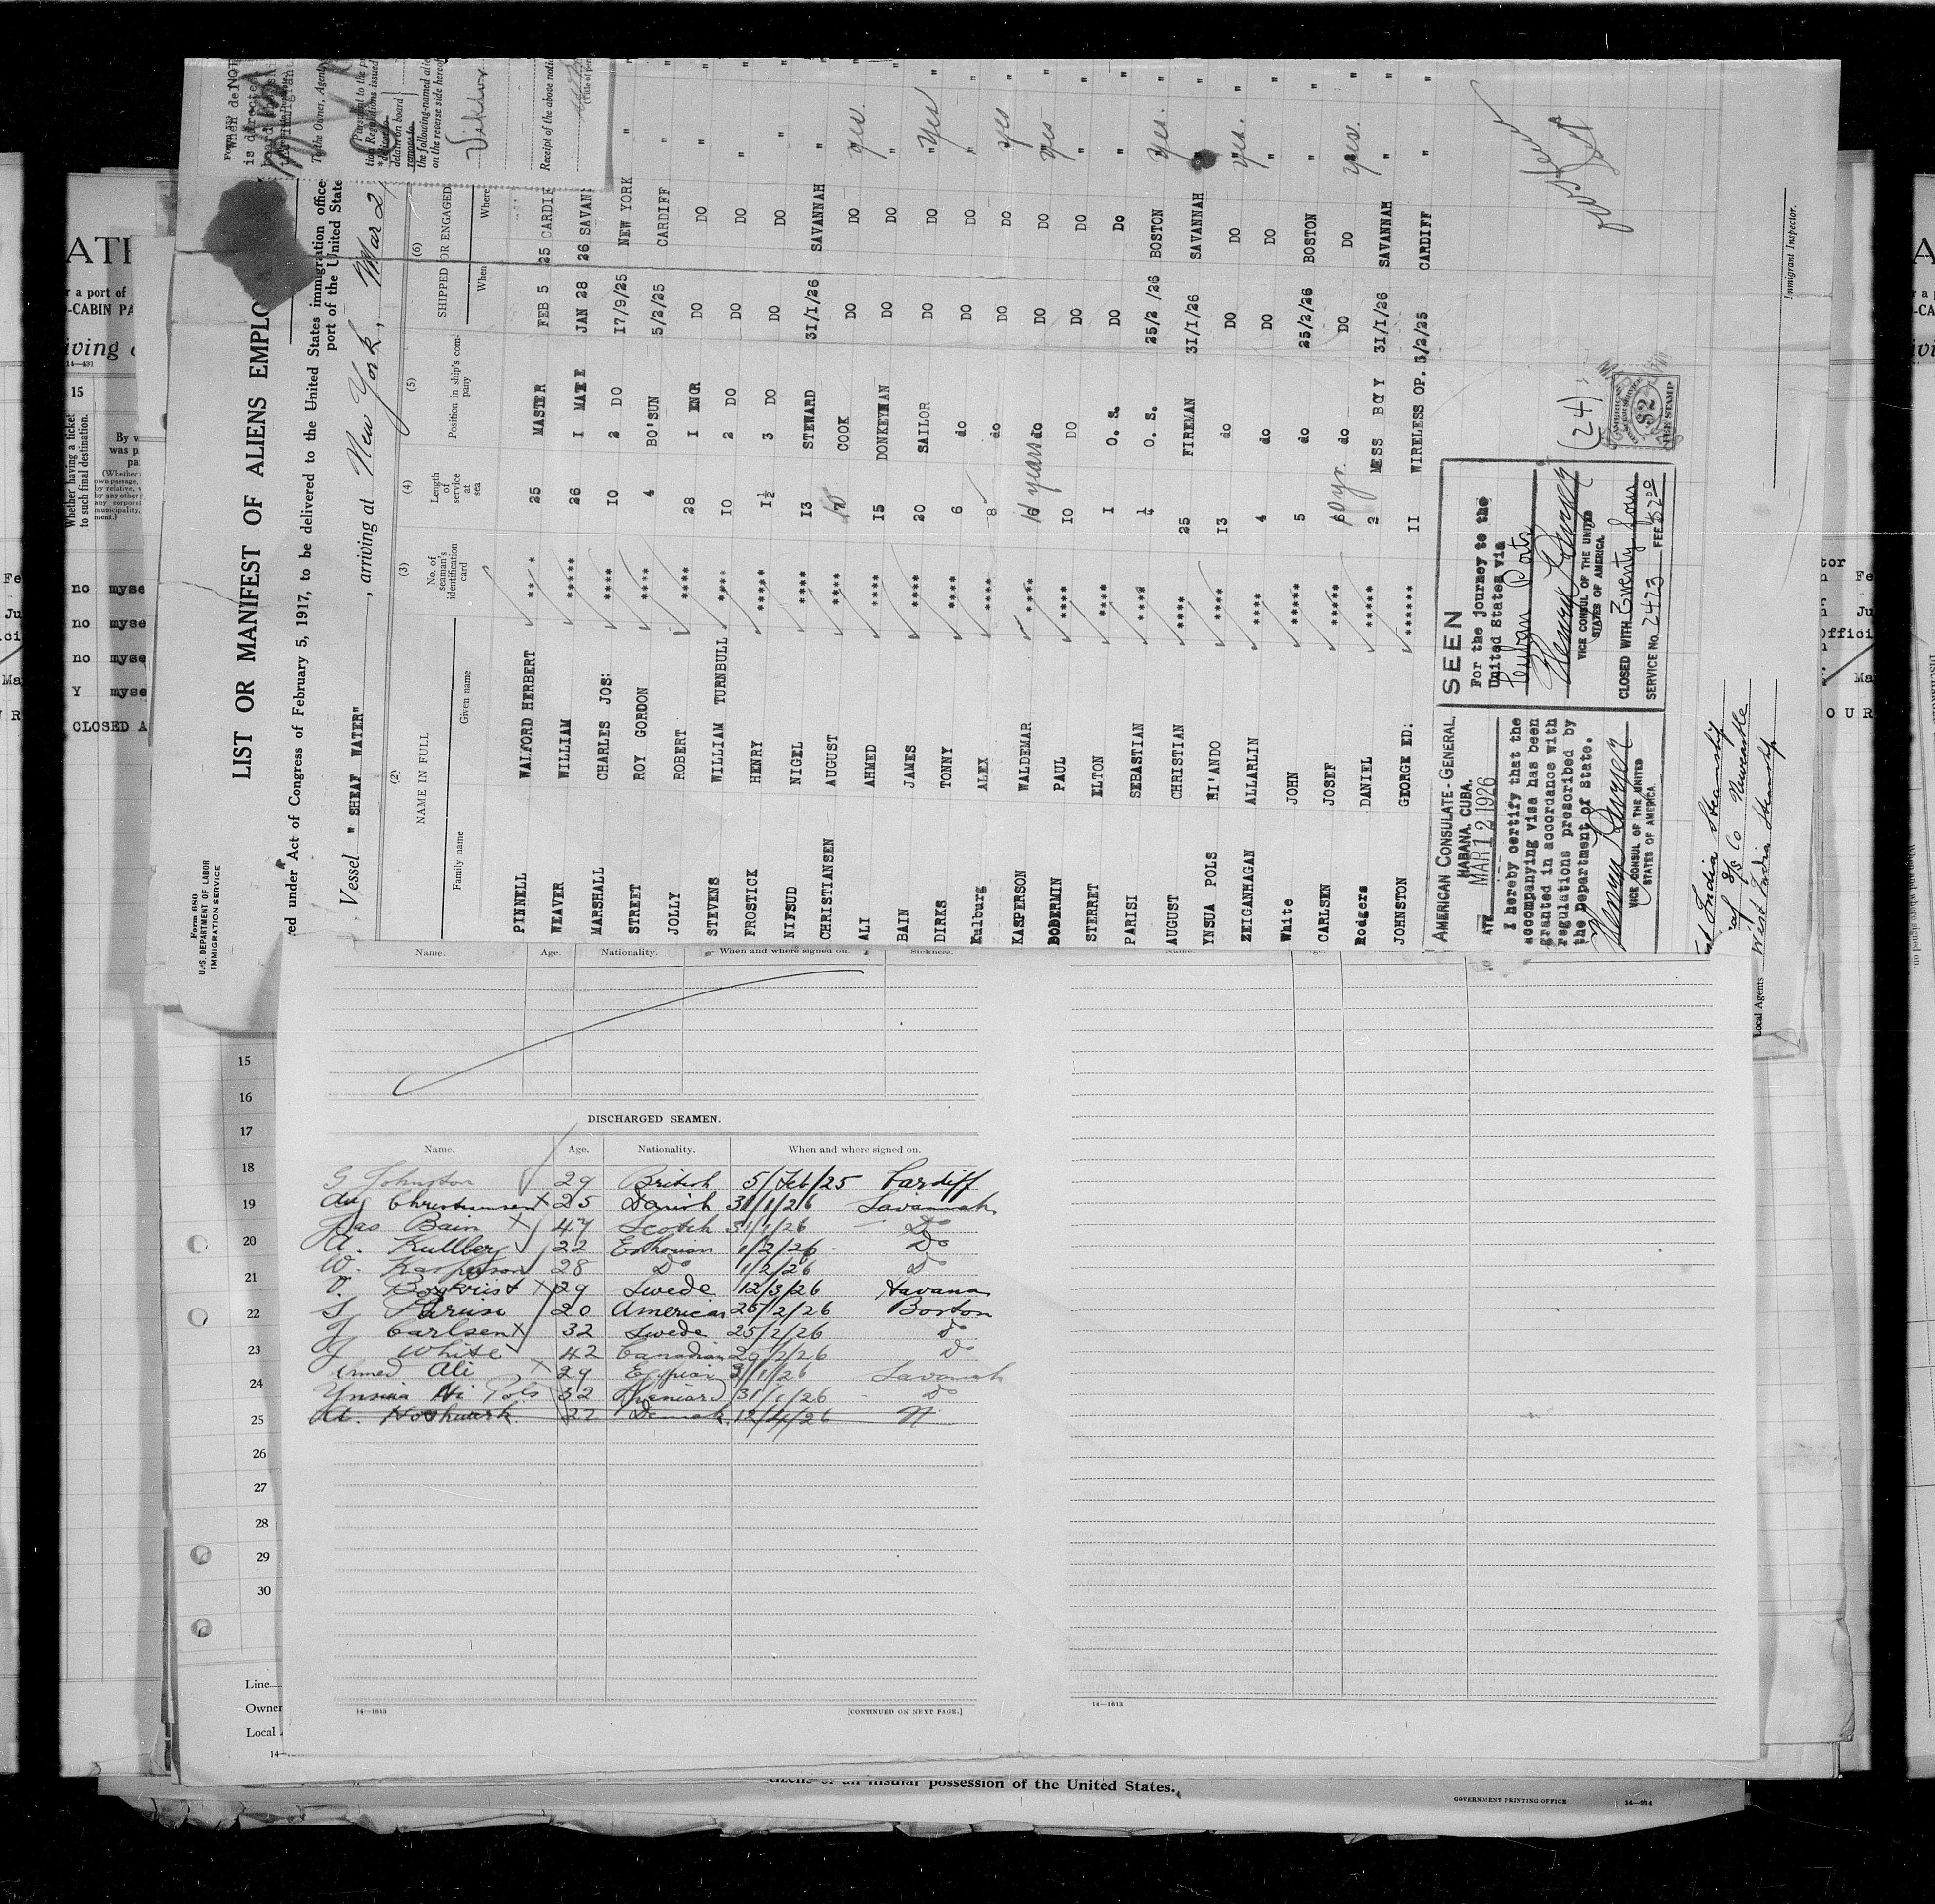 Form 680
U.S. DEPARTMENT OF LABOR
IMMIGRATION SERVICE
LIST OR MANIFEST OF ALIENS EMPLO
ed under Act of Congress of February 5, 1917, to be delivered to the United States immigration office
port of the United State
Vessel " SHEAF WATER" , arriving at New York, Mar 2
(2) (3) (4) (5) (6)
NAME IN FULL No. of seaman's identification card Length of service at sea Position in ship's company SHIPPED OR ENGAGED
Family name Given name When Where
PINNELL WALFORD HERBERT **** 25 MASTER FEB 5 25 CARDIF
WEAVER WILLIAM ***** 26 I MATE JAN 28 26 SAVAN
MARSHALL CHARLES JOS: **** 10 2 DO 17/9/25 NEW YORK "
STREET ROY GORDON **** 4 BO'SUN 5/2/25 CARDIFF " "
JOLLY ROBERT **** 28 I ENGR DO DO " "
STEVENS WILLIAM TURNBULL **** 10 2 DO DO DO " "
FROSTICK HENRY ***** 1½ 3 DO DO DO " "
NIFSUD NIGEL **** 13 STEWARD 31/1/26 SAVANNAH " "
CHRISTIANSEN AUGUST **** COOK DO DO yes.
ALI AHMED **** 15 DONKEYMAN DO DO " "
BAIN JAMES **** 20 SAILOR DO DO " yes "
DIRKS TONNY **** 6 do DO DO " "
Kulburg ALEX **** 8 do DO DO yes "
KASPERSON WALDEMAR **** years do DO DO yes "
BODERMIN PAUL **** 10 DO DO DO " "
STERRET ELTON **** I O. S. DO Do " "
PARISI SEBASTIAN **** ¼ O. S. 25/2 /26 BOSTON yes. "
AUGUST CHRISTIAN **** 25 FIREMAN 31/1/26 SAVANNAH " "
YNSUA POLS HI'ANDO **** 13 do DO DO yes. "
ZEIGANHAGAN ALLARLIN **** 4 do DO DO " "
White JOHN ***** 5 do 25/2/26 BOSTON " "
CARLSEN JOSEF ***** 10 yr. do DO DO yes. "
Rodgers DANIEL **** 2 MESS BOY 31/1/26 SAVANNAH " "
JOHNSTON GEORGE ED: ****** 11 WIRELESS OP. 5/2/25 CARDIFF " "
(24)
AMERICAN CONSULATE-GENERAL,
HABANA, CUBA.
MAR 12 1926
I hereby certify that the
accompanying visa has been
granted in accordance with
regulations prescribed by
the Department of State.
VICE CONSUL OF THE UNITED
STATES OF AMERICA.
SEEN
For the journey to the
United States via
Cuban Ports
VICE CONSUL OF THE UNITED
STATES OF AMERICA.
CLOSED WITH Twenty four
SERVICE NO. 2473 FEE $2.00
AMERICAN
$2
FEE STAMP
India Steamship
S/S Co Newcastle
Local Agents West India Steamship
Immigrant Inspector.
When deNOT
is directed
To the Owner, Agent
Pursuant to the p
tion Regulations issued
detain on board
remove to
the following-named alie
on the reverse side hereof
Viktor
Receipt of the above notic
Name. Age. Nationality. When and where signed on. Sickness.
DISCHARGED SEAMEN.
Name. Age. Nationality. When and where signed on.
G Johnston 29 British 5/Feb/25 Cardiff
Aug Christiansen X 25 Danish 31/1/26 Savannah
Jas Bain X 47 Scotch 31/1/26 Do
A. Kullberg 22 Esthonian 1/2/26 Do
W. Kasperson 28 Do 1/2/26 Do
V. Borgkvist X 29 Swede 12/3/26 Havana
S 20 American 25/2/26 Boston
J Carlsen X 32 Swede 25/2/26 do
J White 42 Canadian 25/2/26 Do
Amed Ali X 29 31/1/26 Savannah
Ynsua Hi Pols 32 31/1/26 do
27 12/4/26
14—1613 [CONTINUED ON NEXT PAGE.]
14—1613
15
16
17
18
19
20
21
22
23
24
25
26
27
28
29
30
Line
Owner
Local
izens of an insular possession of the United States.
GOVERNMENT PRINTING OFFICE 14—214
ATE
r a port of
-CABIN PA
iving
14—431
15
Whether having a ticket
to such final destination.
no myse
no myse
no myse
Y myse
CLOSED A